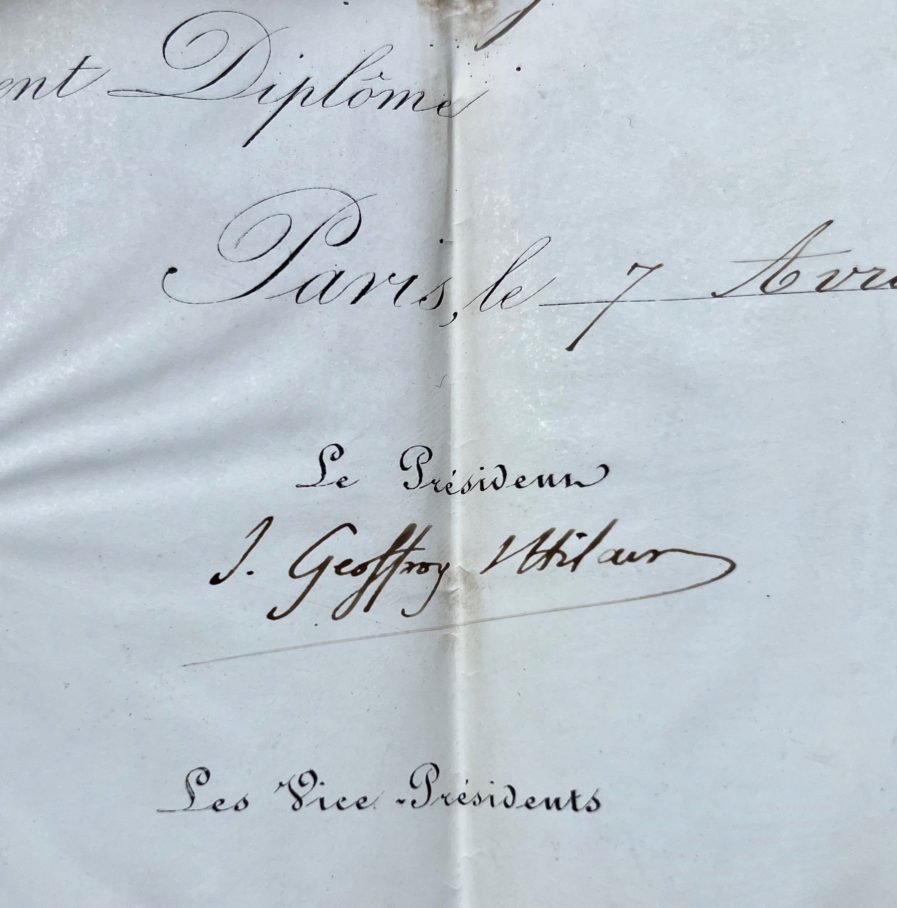 ent Diplôme
Paris, le 7 Avri
Le Président
J. Geoffroy St Hilaire
Les Vice-Présidents